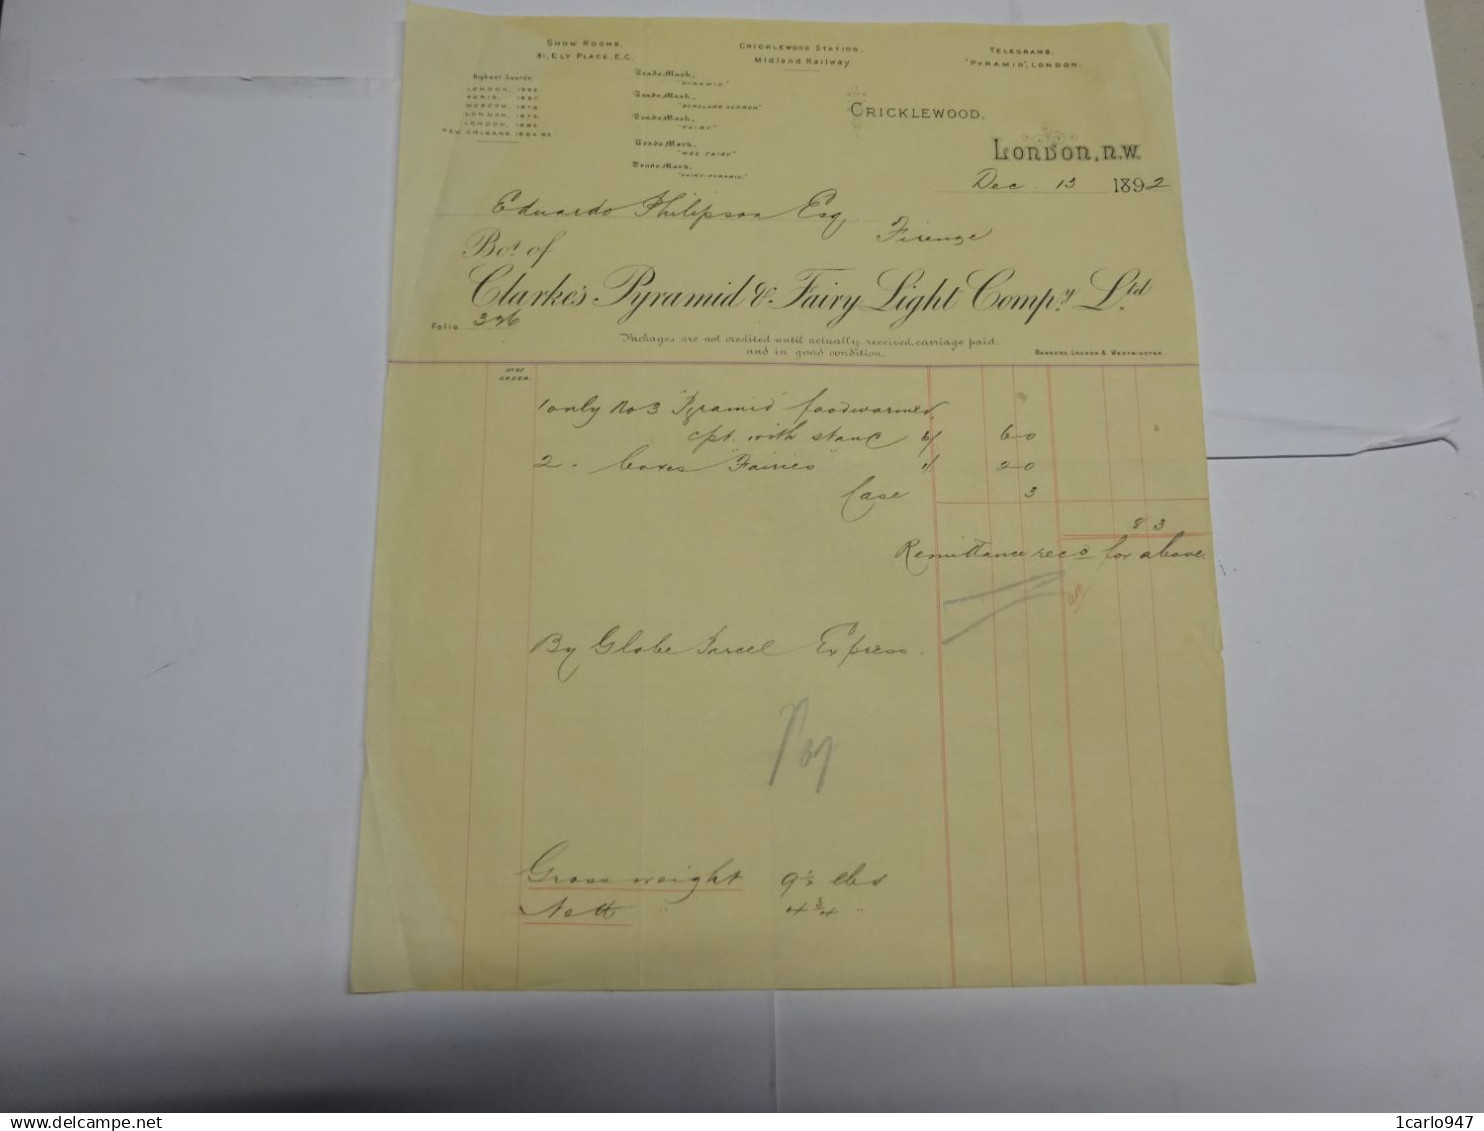 SHOW ROOMS,
31, ELY PLACE, E.C.
CRICKLEWOOD STATION,
Midland Railway
TELEGRAMS,
"PYRAMID", LONDON.
Highest Awards.
LONDON, 1862
PARIS, 1867
MOSCOW, 1872
LONDON, 1873
LONDON, 1884
NEW ORLEANS 1884-85
Trade Mark,
"PYRAMID."
Trade Mark,
"BURGLARS HORROR"
Trade Mark,
"FAIRY"
Trade Mark,
"WEE FAIRY"
Trade Mark,
"FAIRY-PYRAMID."
CRICKLEWOOD,
LONDON, N.W.
Dec 13 1892
Eduardo Philipson Esq
Firenze
Bot. of
Clarke's Pyramid & Fairy Light Compy. Ltd.
Folio 326
Packages are not credited until actually received, carriage paid.
and in good condition.
BANKERS, LONDON & WESTMINSTER
No OF
ORDER.
1 only No 3 "Pyramid" foodwarmer,
cpt. with stand 6/ 6 0
2 - boxes "Fairies" 1/ 2 0
Case 3
8 3
Remittance recd for above.
By Globe Parcel Express.
Gross weight 9½ lbs
Nett " 4¾ "
1carlo947